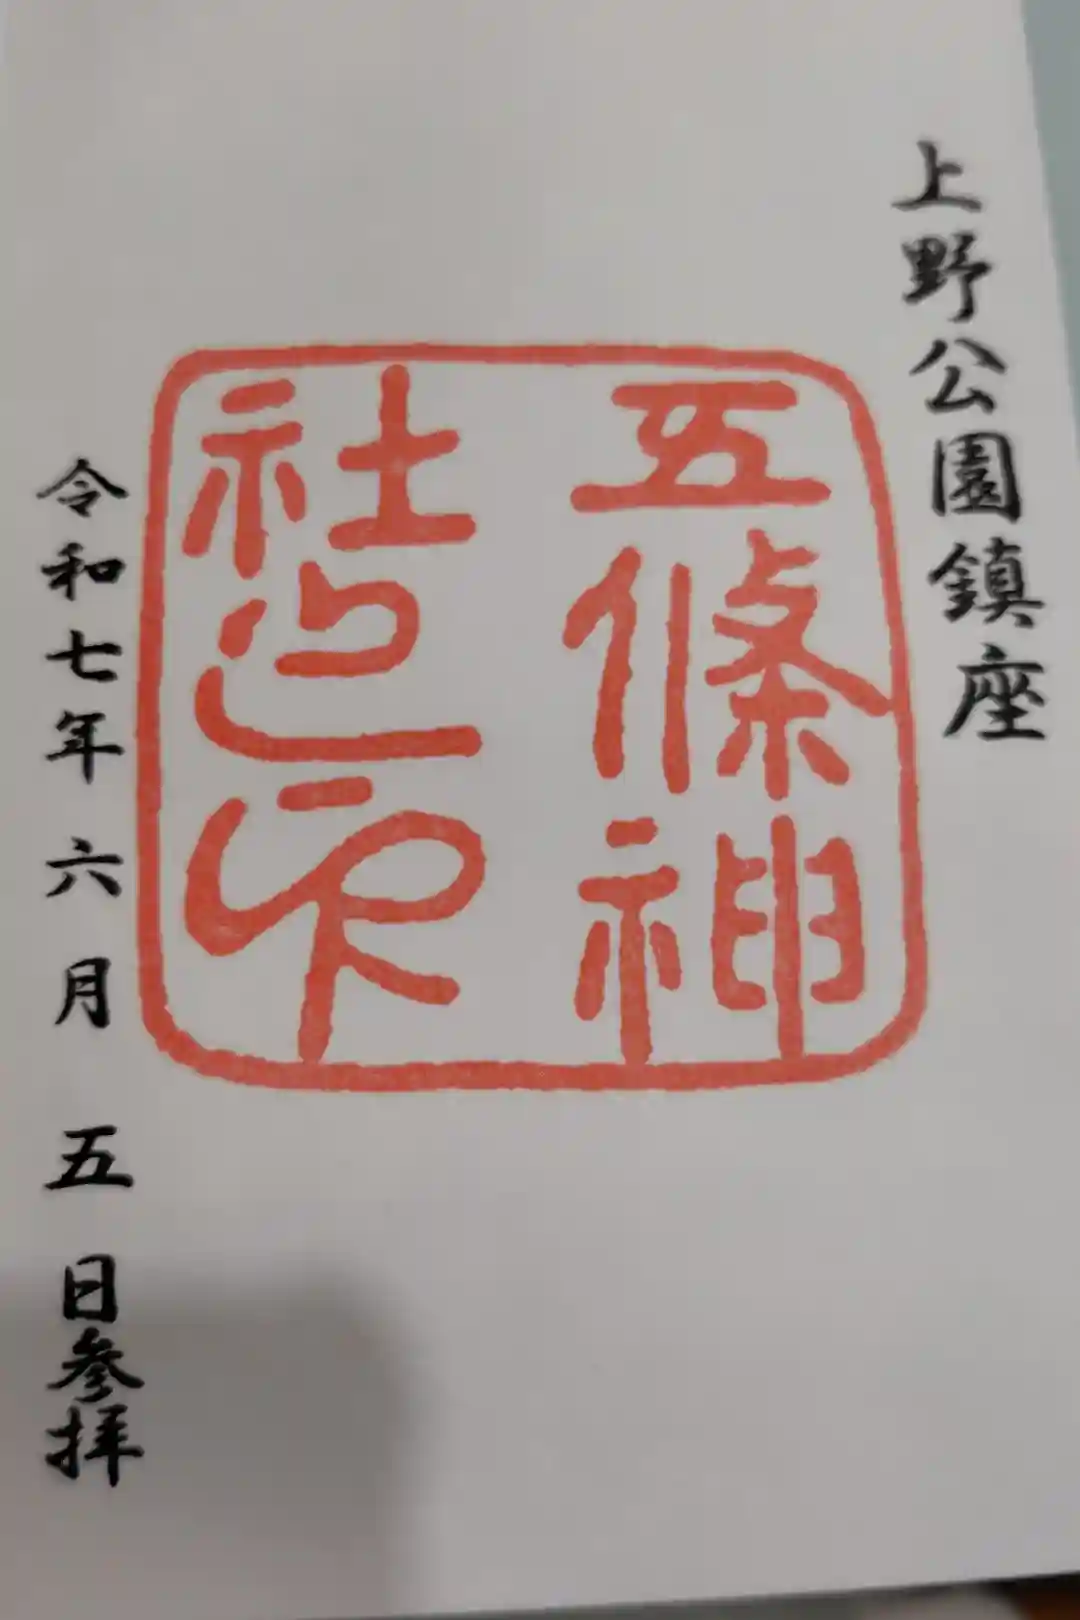 上野公園鎮座
五條神
社之印
令和七年六月五日参拝